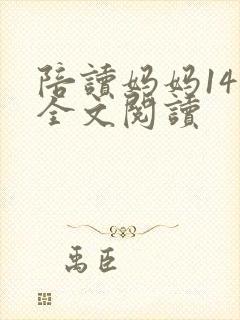 陪讀妈妈14
全文閱讀
禹臣